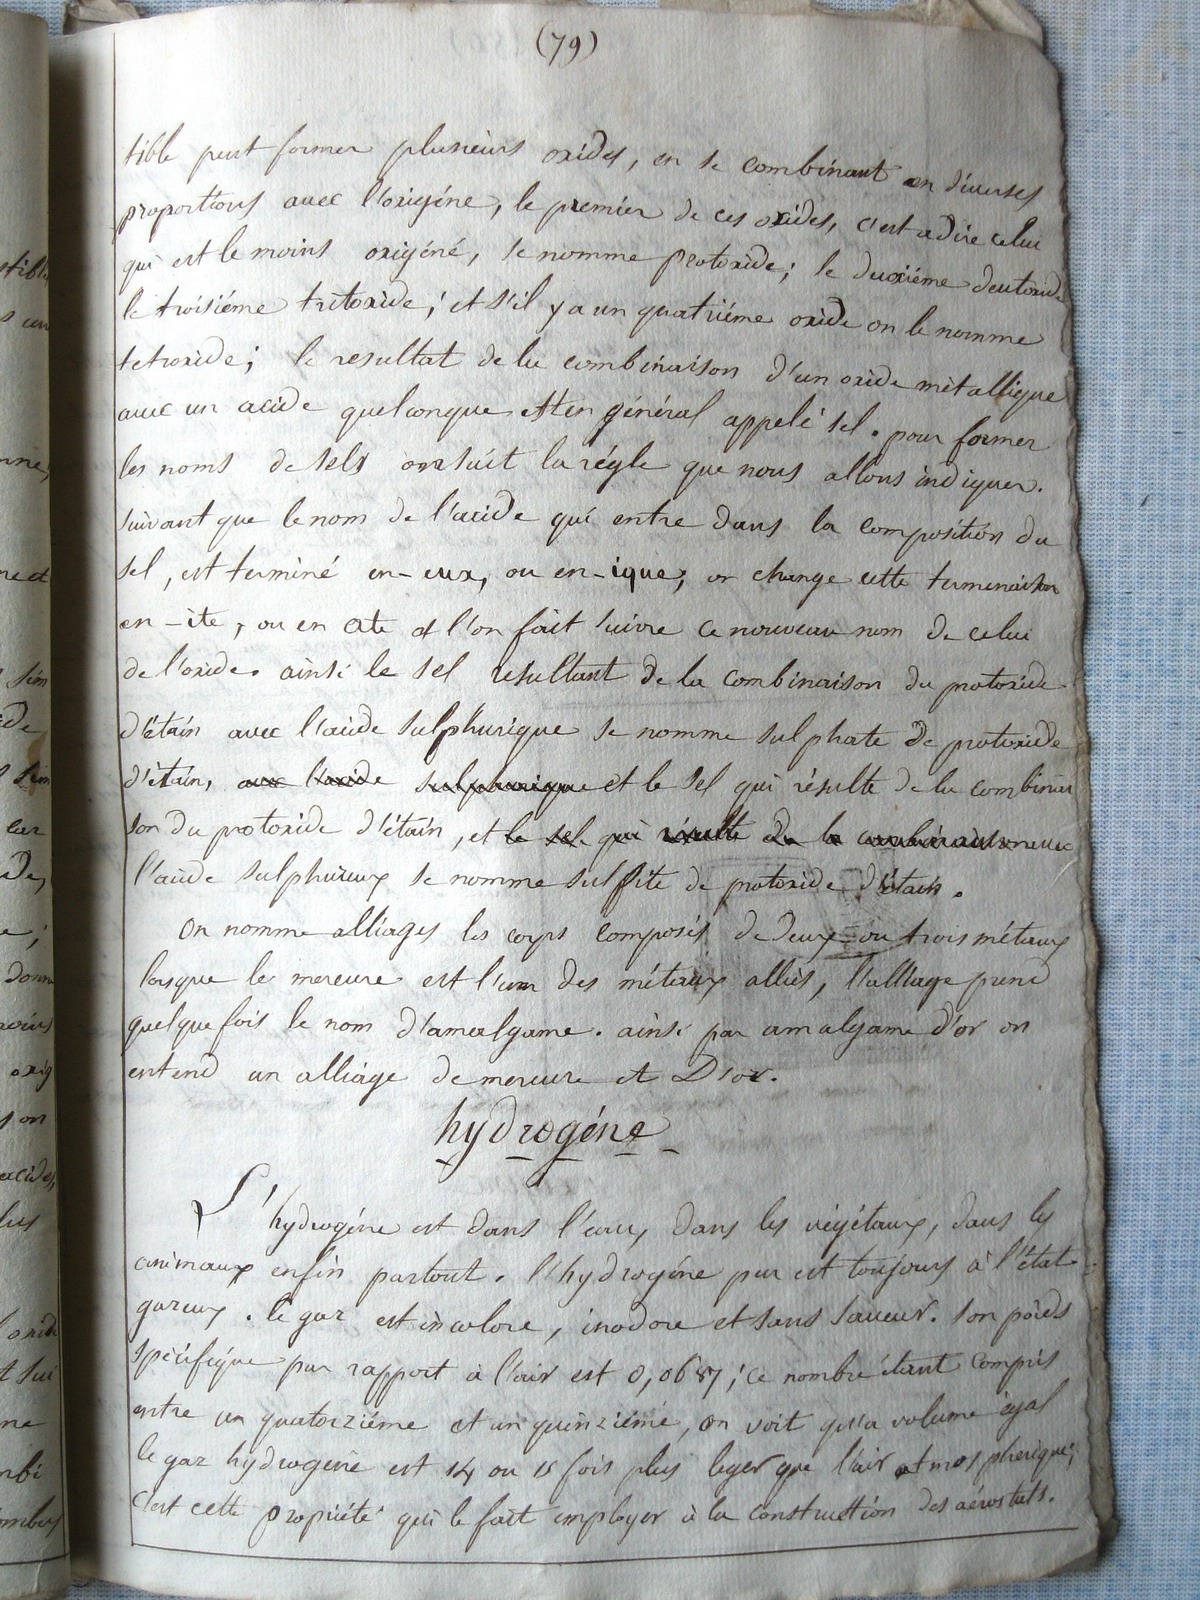 (79)
tible peut former plusieurs oxides, en se combinant en diverses
proportions avec l'oxigéne, le premier de ces oxides, c'est adire celui
qui est le moins oxigéné, se nomme protoxide; le duxiéme deutoxide
le troisiéme tritoxide; et s'il y a un quatriéme oxide on le nomme
tetroxide; le resultat de la combinaison d'un oxide métallique
avec un acide quelconque est en général appelé sel. pour former
les noms de sels on suit la régle que nous allons indiquer.
suivant que le nom de l'acide qui entre dans la composition du
sel, est terminé en-eux, ou en-ique, on change cette terminaison
en-ite, ou en ate et l'on fait suivre ce nouveau nom de celui
de l'oxide. ainsi le sel resultant de la combinaison du protoxide
d'étain avec l'acide sulphurique se nomme sulphate de protoxide
d'étain, avec l'acide sulphurique et le sel qui résulte de la combinai
son du protoxide d'étain, et le sel qui résulte de la combinaison avec
l'acide sulphureux se nomme sulfite de protoxide d'étain.
on nomme alliages les corps composés de deux ou trois métaux
lorsque le mercure est l'un des métaux alliés, l'alliage prend
quelque fois le nom d'amalgame. ainsi par amalgame d'or on
entend un alliage de mercure et D'or.
hydrogéne
L'hydrogéne est dans l'eau, dans les végétaux, dans les
animaux enfin partout. l'hydrogéne pur est toujours à l'état
gazeux. le gaz est incolore, inodore et sans saveur. son poids
spécifique par rapport à l'air est 0,0687; ce nombre étant compris
entre un quatorziéme et un quinziéme, on voit qu'a volume égal
le gaz hydrogéne est 14 ou 15 fois plus leger que l'air atmospherique;
c'est cette propriété qui le fait employer à la construction des aérostats.